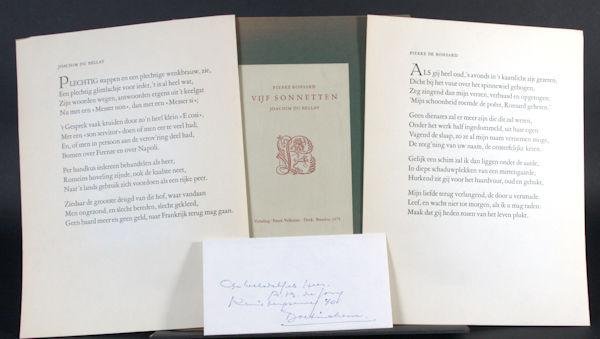 JOACHIM DU BELLAY
PLECHTIG stappen en een plechtige wenkbrauw, zie,
Een plechtig glimlachje voor ieder, 't is al heel wat,
Zijn woorden wegen, antwoorden ergens uit 't keelgat
Nu met een «Messer non», dan met een «Messer si»;
't Gesprek vaak kruiden door zo'n heel klein «E cosi»,
Met een «son servitor» doen of men eer te veel had,
En, of men in persoon aan de verov'ring deel had,
Bomen over Firenze en over Napoli.
Per handkus iedereen behandelen als heer,
Romeins hoveling zijnde, ook de kaalste neet,
Naar 's lands gebruik zich voordoen als een rijke peer.
Ziedaar de grootste deugd van dit hof, waar vandaan
Men ongezond, en slecht bereden, slecht gekleed,
Geen baard meer en geen geld, naar Frankrijk terug mag gaan.
PIERRE RONSARD
VIJF SONNETTEN
JOACHIM DU BELLAY
PIERRE DE RONSARD
ALS gij heel oud, 's avonds in 't kaarslicht zit gezeten,
Dicht bij het vuur over het spinnewiel gebogen,
Zeg zingend dan mijn verzen, verbaasd en opgetogen:
'Mijn schoonheid roemde de poëet, Ronsard geheten.'
Geen dienares zal er meer zijn die dit zal weten,
Onder het werk half ingedommeld, uit haar ogen
Vagend de slaap, zo ze al mijn naam vernemen moge,
De zeeg'ning van uw naam, de onsterfelijke keten.
Gelijk een schim zal ik dan liggen onder de aarde,
In diepe schaduwplekken van een mirtengaarde;
Hurkend zit gij voor het haardvuur, oud en gebukt,
Mijn liefde terug verlangend, die door u versmade.
Leef, en wacht niet tot morgen, als ik u mag raden.
Maak dat gij heden rozen van het leven plukt.